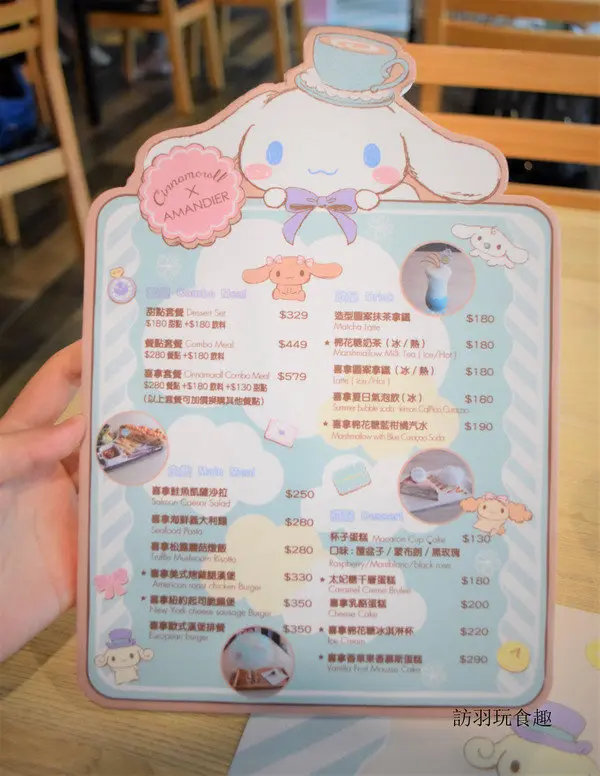 Cinnamoroll
×
AMANDIER
Combo Meal
甜點套餐 Dessert Set $329
$180 甜點 +$180 飲料
餐點套餐 Combo Meal $449
$280 餐點 +$180 飲料
喜拿套餐 Cinnamoroll Combo Meal $579
$280 餐點 +$180 飲料 +$130 甜點
(以上套餐可加價換購其他餐點)
Main Meal
喜拿鮭魚凱薩沙拉 $250
Salmon Caesar Salad
喜拿海鮮義大利麵 $280
Seafood Pasta
喜拿松露蘑菇燉飯 $280
Truffle Mushroom Risotto
★ 喜拿美式烤雞腿漢堡 $330
American roast chicken Burger
★ 喜拿紐約起司脆腸堡 $350
New York cheese sausage Burger
喜拿歐式漢堡排餐 $350
European burger
Drink
造型圖案抹茶拿鐵 $180
Matcha Latte
★ 棉花糖奶茶 (冰 / 熱) $180
Marshmallow Milk Tea [ Ice/Hot ]
喜拿圖案拿鐵 (冰 / 熱) $180
Latte [ Ice/Hot ]
喜拿夏日氣泡飲 (冰) $180
Summer bubble soda
★ 喜拿棉花糖藍柑橘汽水 $190
Marshmallow with Blue Curaçao Soda
Dessert
杯子蛋糕 Macaron Cup Cake $130
口味：覆盆子 / 蒙布朗 / 黑玫瑰
Raspberry/Montblanc/black rose
★ 太妃糖千層蛋糕 $180
Caramel Creme Brulee
喜拿乳酪蛋糕 $200
Cheese Cake
★ 喜拿棉花糖冰淇淋杯 $220
Ice Cream
★ 喜拿香草果香慕斯蛋糕 $290
Vanilla Fruit Mousse Cake
訪羽玩食趣